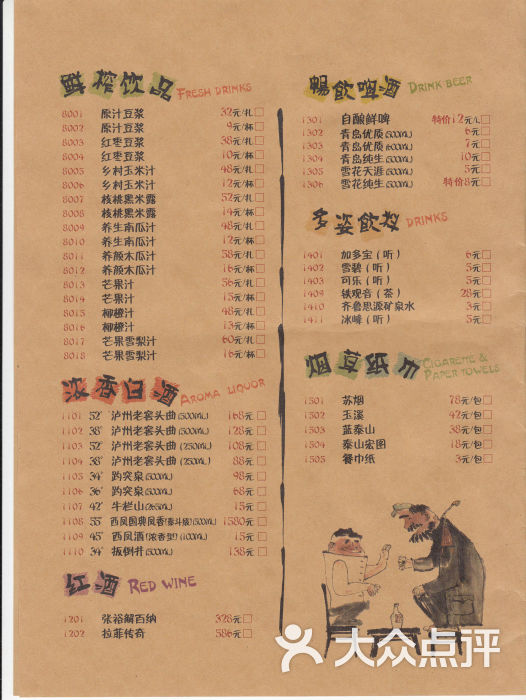 鲜榨饮品 FRESH DRINKS
8001 原汁豆浆 32元/扎
8002 原汁豆浆 9元/杯
8003 红枣豆浆 38元/扎
8004 红枣豆浆 10元/杯
8005 乡村玉米汁 48元/扎
8006 乡村玉米汁 12元/杯
8007 核桃黑米露 52元/扎
8008 核桃黑米露 14元/杯
8009 养生南瓜汁 48元/扎
8010 养生南瓜汁 12元/杯
8011 养颜木瓜汁 58元/扎
8012 养颜木瓜汁 16元/杯
8013 芒果汁 56元/扎
8014 芒果汁 15元/杯
8015 柳橙汁 48元/扎
8016 柳橙汁 13元/杯
8017 芒果雪梨汁 60元/扎
8018 芒果雪梨汁 16元/杯
浓香白酒 AROMA LIQUOR
1101 52° 泸州老窖头曲(500ML) 168元
1102 38° 泸州老窖头曲(500ML) 128元
1103 52° 泸州老窖头曲(250ML) 108元
1104 38° 泸州老窖头曲(250ML) 88元
1105 34° 趵突泉(500ML) 98元
1106 36° 趵突泉(500ML) 68元
1107 42° 牛栏山(265ML) 15元
1108 55° 西凤国典凤香(泰斗级)(500ML) 1580元
1109 45° 西凤酒(浓香型)(100ML) 15元
1110 34° 扳倒井(500ML) 138元
红酒 RED WINE
1201 张裕解百纳 328元
1202 拉菲传奇 586元
暢飲啤酒 DRINK BEER
1301 自酿鲜啤 特价12元/扎
1302 青岛优质(500ML) 6元
1303 青岛优质(600ML) 7元
1304 青岛纯生(500ML) 10元
1305 雪花天涯(500ML) 5元
1306 雪花纯生(500ML) 特价8元
多姿飲料 DRINKS
1401 加多宝(听) 6元
1402 雪碧(听) 5元
1403 可乐(听) 5元
1409 铁观音(茶) 28元
1410 齐鲁思源矿泉水 3元
1411 冰峰(听) 5元
烟草纸巾 CIGARETTE & PAPER TOWELS
1501 苏烟 78元/包
1502 玉溪 42元/包
1503 蓝泰山 38元/包
1504 泰山宏图 18元/包
1505 餐巾纸 3元/包
大众点评